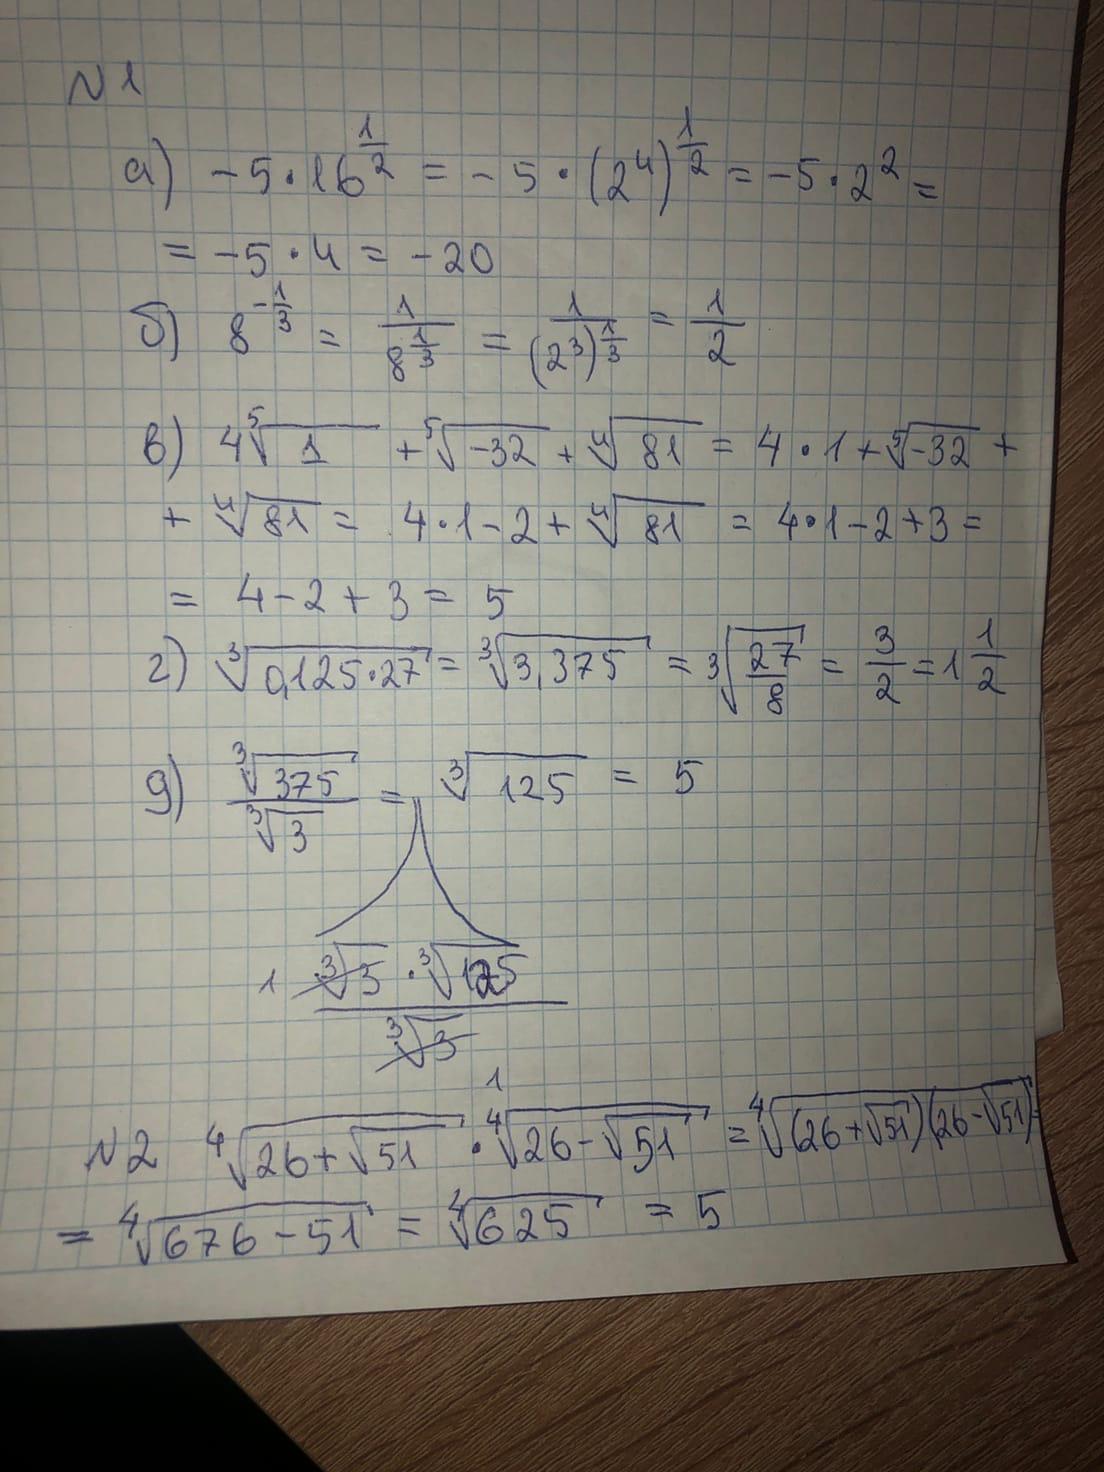 №1
а) -5·16^{1/2} = -5·(2^4)^{1/2} = -5·2^2 =
= -5·4 = -20
б) 8^{-1/3} = 1/8^{1/3} = 1/(2^3)^{1/3} = 1/2
в) 4⁵√1 + ⁵√-32 + ⁴√81 = 4·1 + ⁵√-32 +
+ ⁴√81 = 4·1-2+⁴√81 = 4·1-2+3 =
= 4-2+3 = 5
г) ³√0,125·27 = ³√3,375 = ³√27/8 = 3/2 = 1 1/2
д) ³√375/³√3 = ³√125 = 5
1 ³√3·³√125
³√3
1
№2 ⁴√26+√51 · ⁴√26-√51 = ⁴√(26+√51)(26-√51) =
= ⁴√676-51 = ⁴√625 = 5